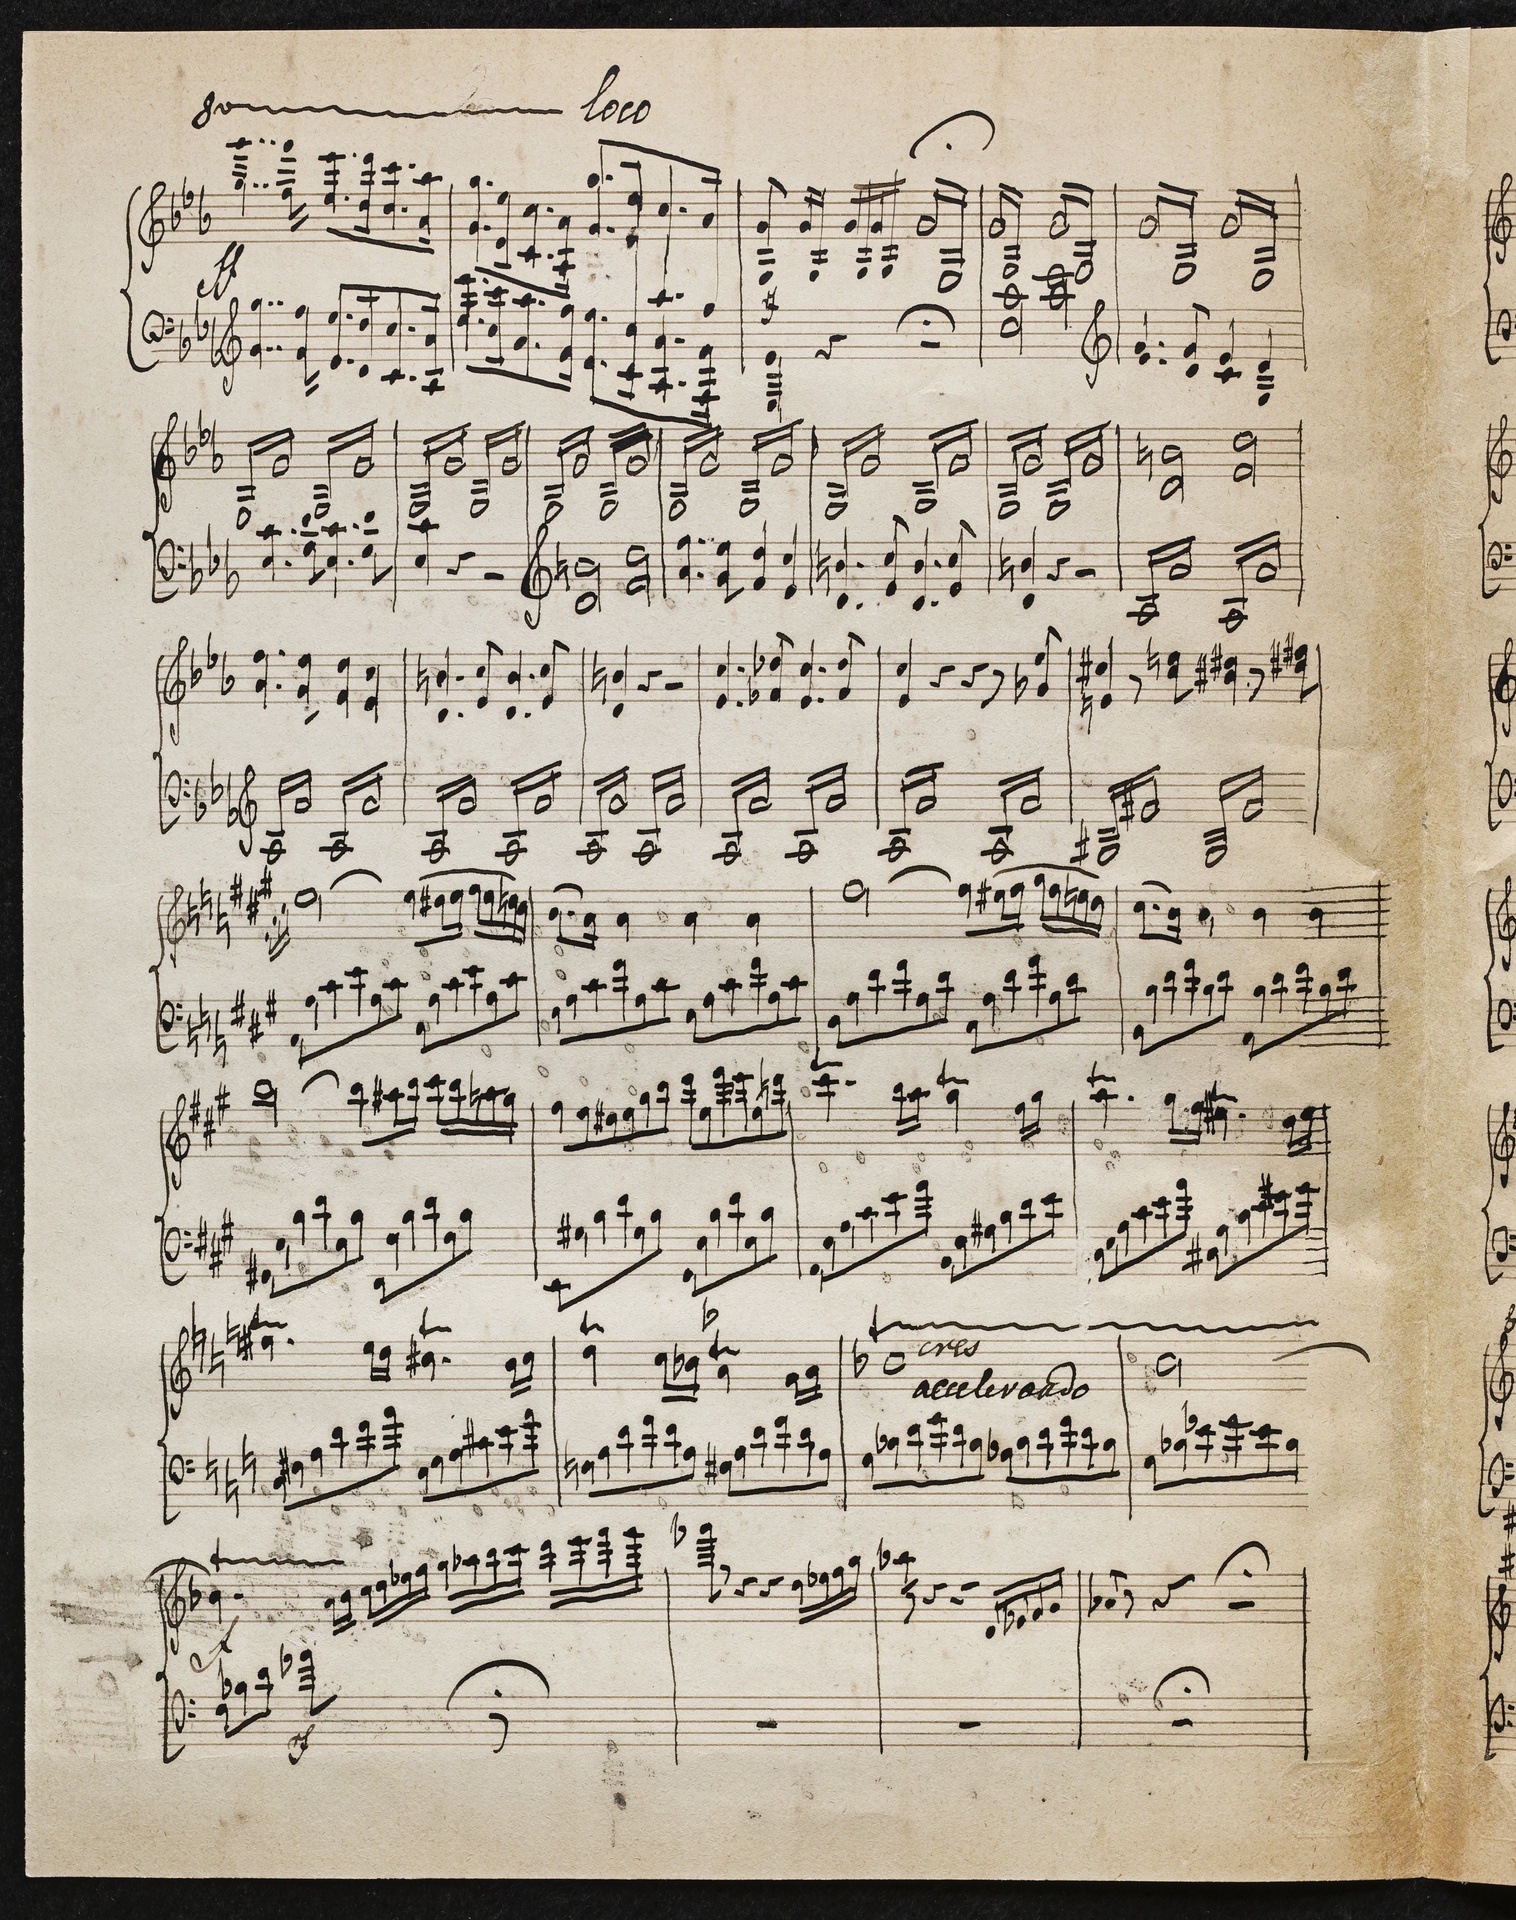 8va loco
ff
cres
accelerando